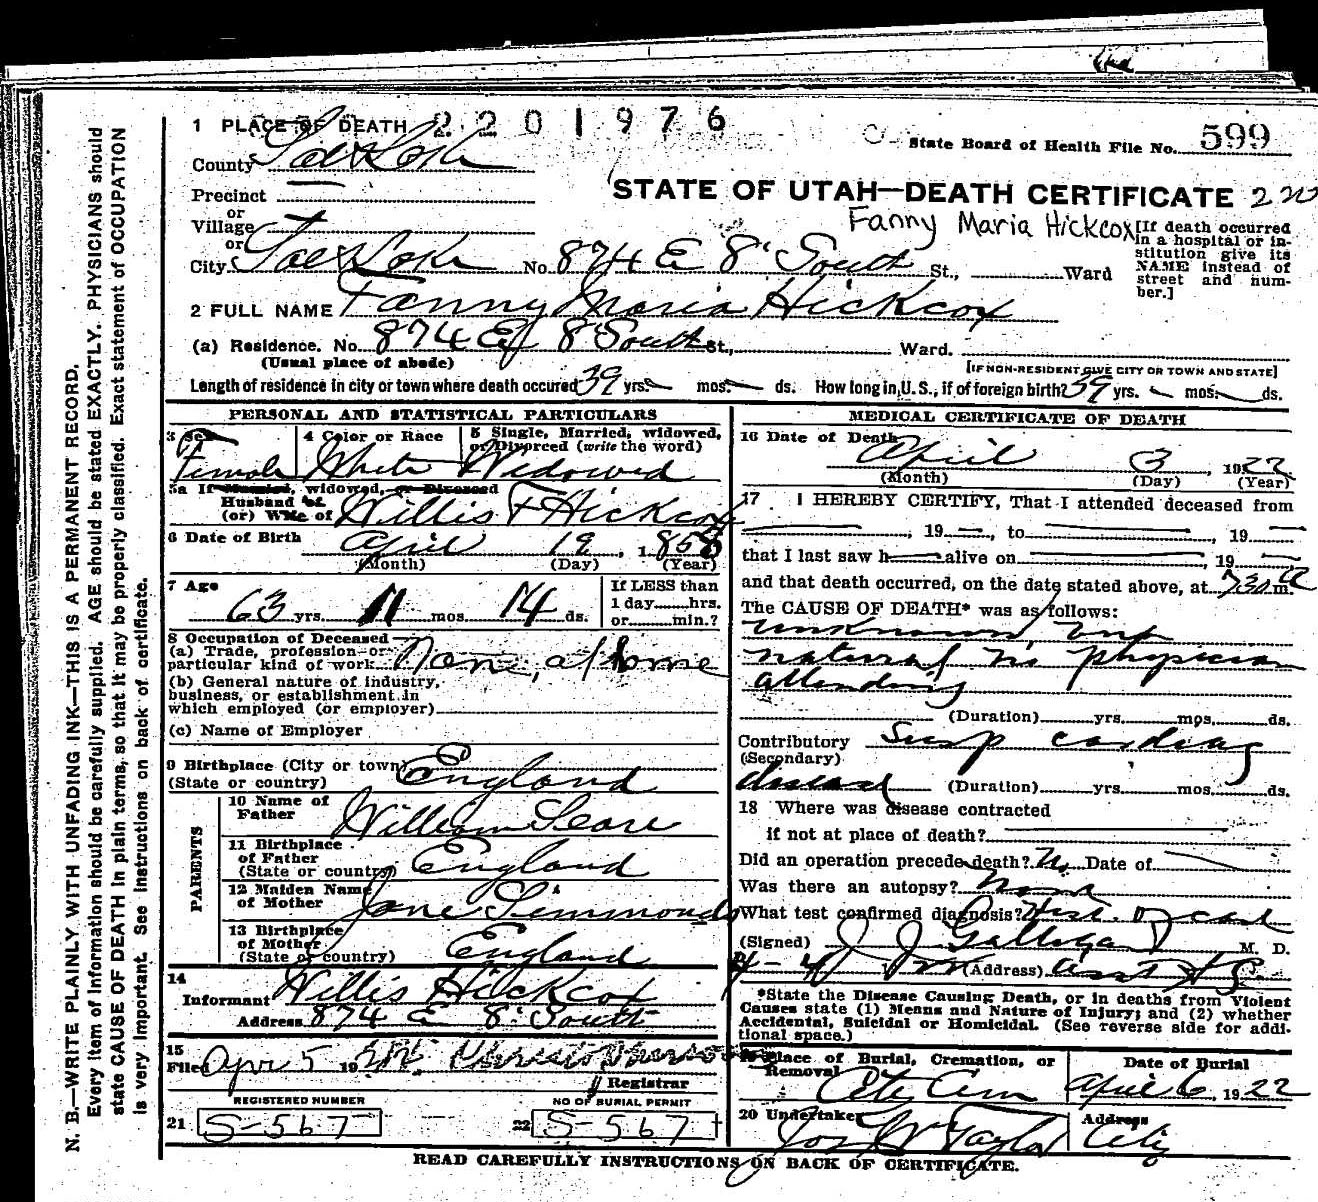 1 PLACE OF DEARTH 2201976
State Board of Health File No. 599
County Salt Lake
STATE OF UTAH—DEATH CERTIFICATE 220
Precinct
or
Village
or
City Salt Lake No. 874 E 8" South St., Ward
Fanny Maria Hickcox
[If death occurred
in a hospital or in-
stitution give its
NAME instead of
street and num-
ber.]
2 FULL NAME Fanny Maria Hickcox
(a) Residence. No. 874 E 8 South St., Ward.
(Usual place of abode) [IF NON-RESIDENT GIVE CITY OR TOWN AND STATE]
Length of residence in city or town where death occured 39 yrs. — mos. — ds. How long in U.S., if of foreign birth? 39 yrs. — mos. — ds.
PERSONAL AND STATISTICAL PARTICULARS
3 Sex Female
4 Color or Race White
5 Single, Married, widowed,
or Divorced (write the word)
Widowed
5a If Married, widowed, or Divorced
Husband of
(or) Wife of Willis F Hickcox
6 Date of Birth April 19, 1858
(Month) (Day) (Year)
7 Age 63 yrs. 11 mos. 14 ds.
If LESS than
1 day......hrs.
or......min.?
8 Occupation of Deceased
(a) Trade, profession or
particular kind of work None, at home
(b) General nature of industry,
business, or establishment in
which employed (or employer)
(c) Name of Employer
9 Birthplace (City or town)
(State or country) England
PARENTS
10 Name of
Father William Seare
11 Birthplace
of Father
(State or country) England
12 Maiden Name
of Mother Jane Simmonds
13 Birthplace
of Mother
(State or country) England
14
Informant Willis Hickcox
Address 874 E 8" South
15
Filed Apr 5 19
Registrar
REGISTERED NUMBER NO OF BURIAL PERMIT
21 S-567 22 S-567
MEDICAL CERTIFICATE OF DEATH
16 Date of Death April 3, 1922
(Month) (Day) (Year)
17 I HEREBY CERTIFY, That I attended deceased from
—, 19 —, to —, 19 —
that I last saw h— alive on —, 19 —
and that death occurred, on the date stated above, at 730 a m.
The CAUSE OF DEATH* was as follows:
unknown, but
natural no physician
attending
(Duration) yrs. mos. ds.
Contributory Susp cardiac
(Secondary)
disease (Duration) yrs. mos. ds.
18 Where was disease contracted
if not at place of death?
Did an operation precede death? No Date of —
Was there an autopsy? None
What test confirmed diagnosis? Hist. of case
(Signed) J J Galligan M. D.
4-4, (Address)
*State the Disease Causing Death, or in deaths from Violent
Causes state (1) Means and Nature of Injury; and (2) whether
Accidental, Suicidal or Homicidal. (See reverse side for addi-
tional space.)
19 Place of Burial, Cremation, or
Removal City Cem
Date of Burial
April 6, 1922
20 Undertaker Jos W Taylor
Address City
READ CAREFULLY INSTRUCTIONS ON BACK OF CERTIFICATE.
N. B.—WRITE PLAINLY WITH UNFADING INK—THIS IS A PERMANENT RECORD.
Every item of Information should be carefully supplied. AGE should be stated EXACTLY. PHYSICIANS should
state CAUSE OF DEATH in plain terms, so that it may be properly classified. Exact statement of OCCUPATION
is very important. See instructions on back of certificate.